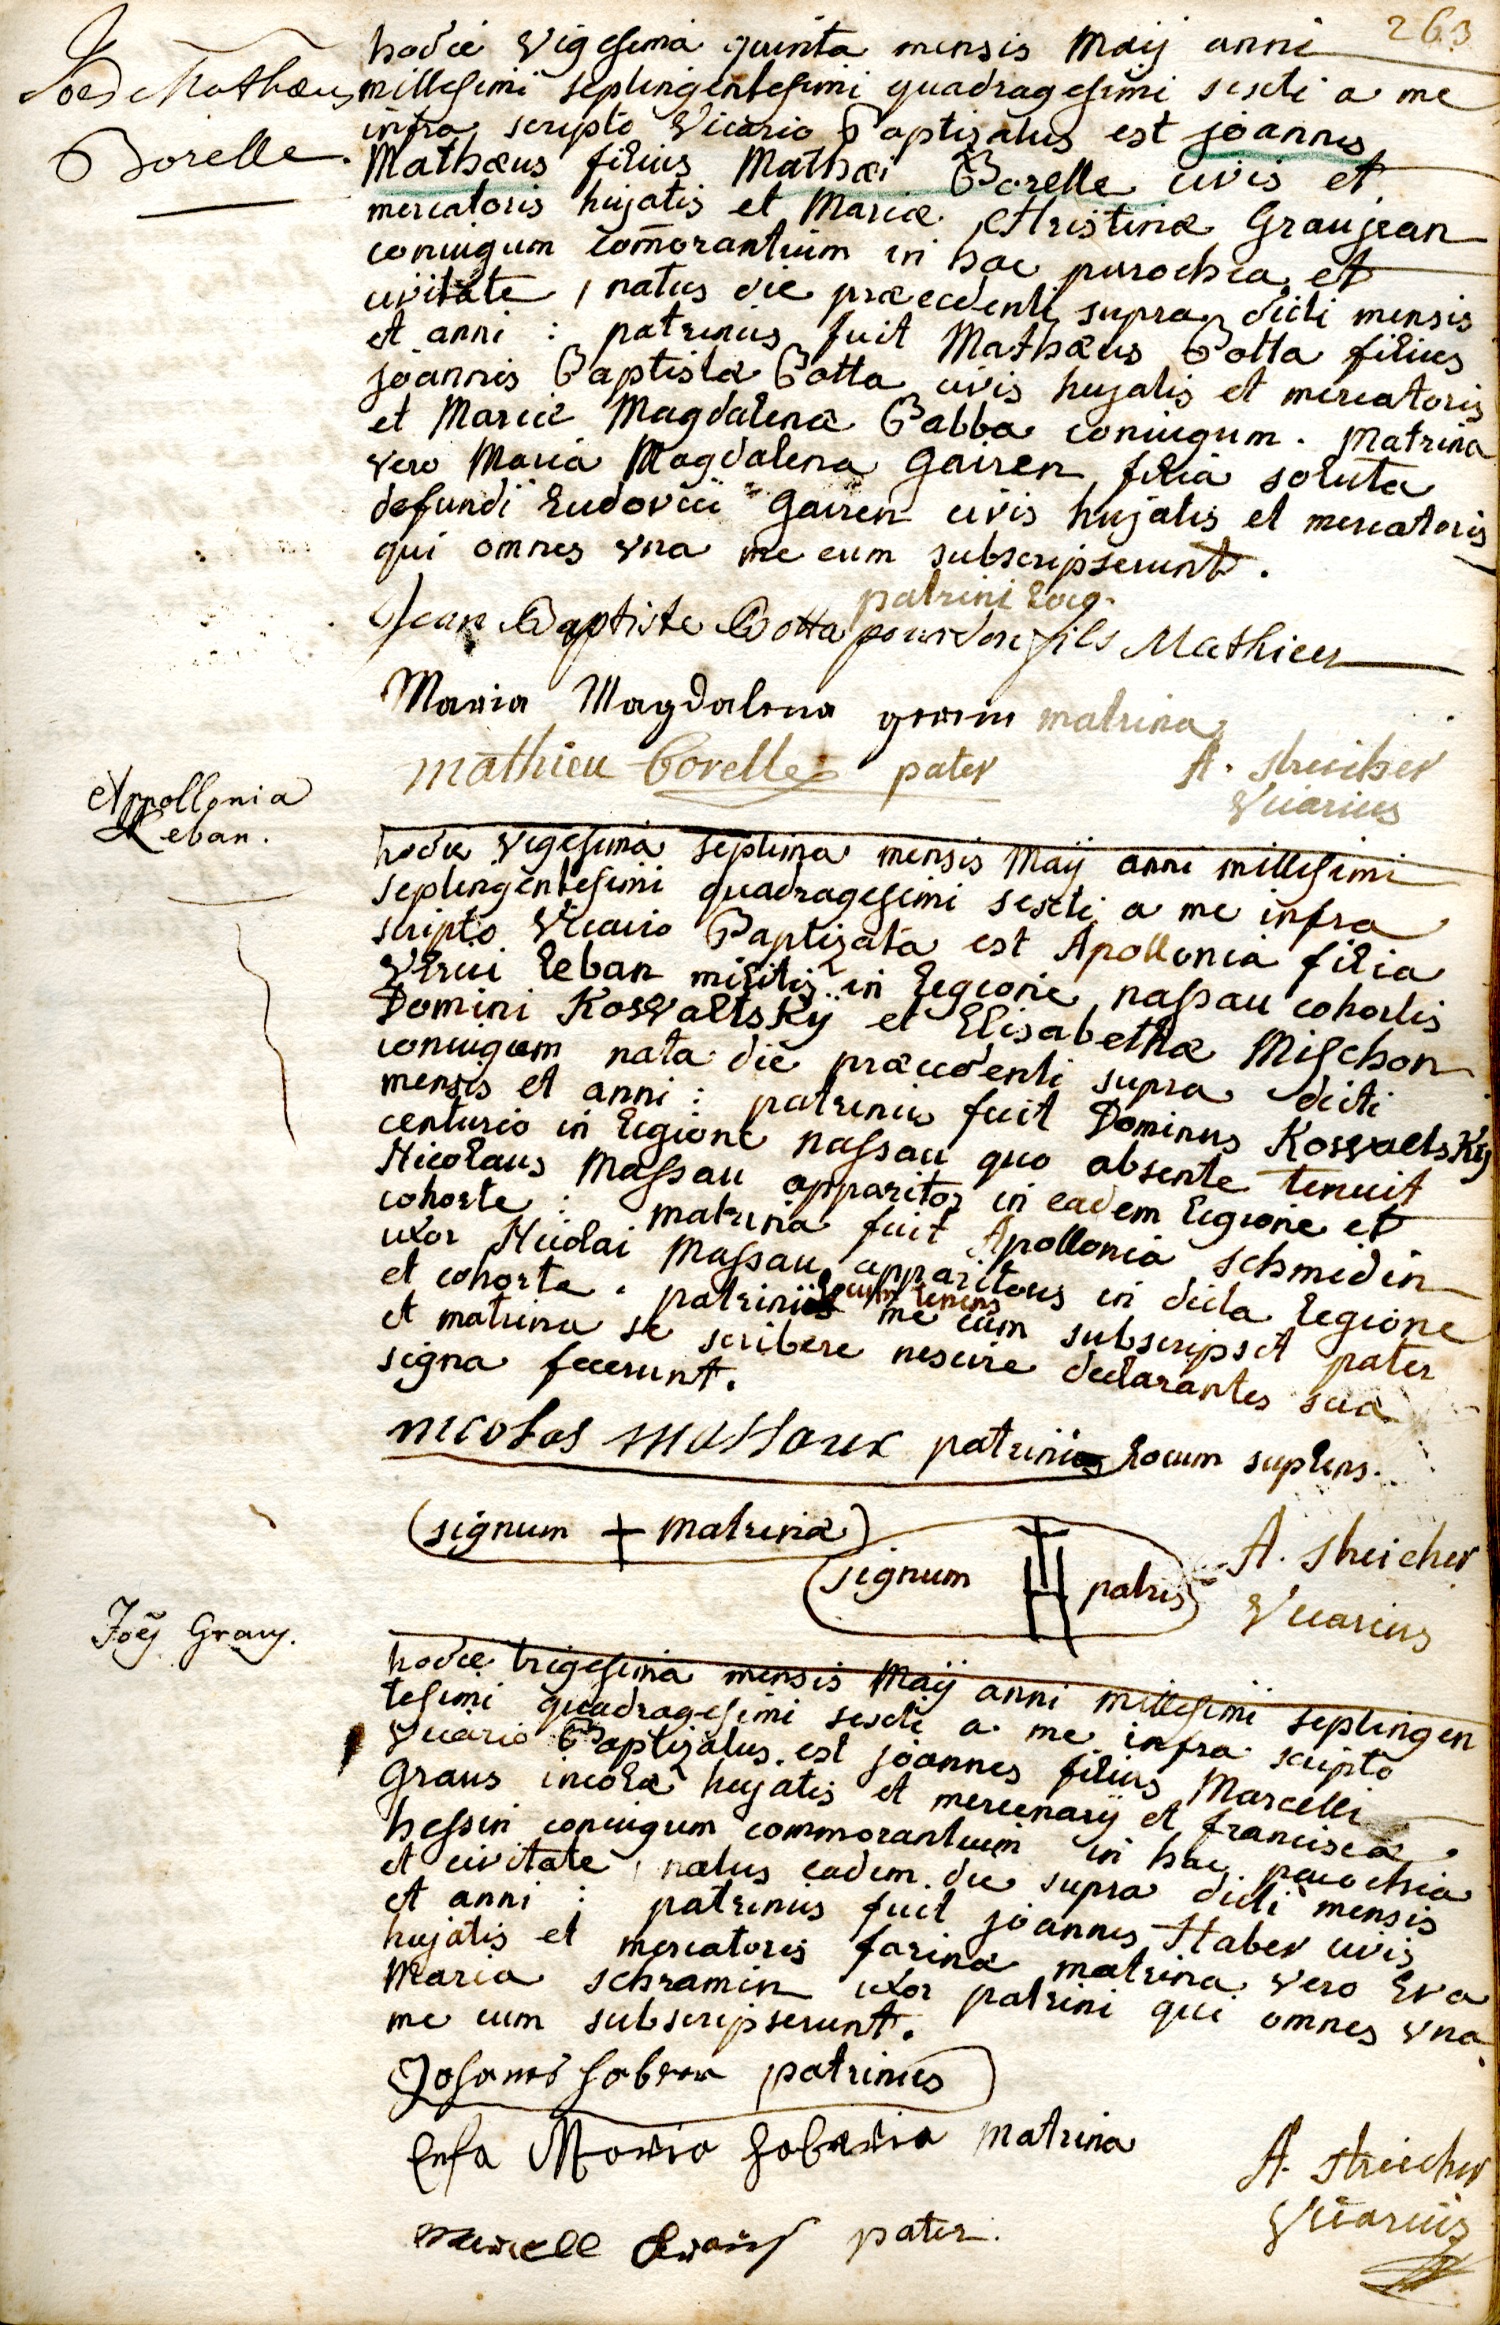 263
Joēs Mathæus
Borelle.
hodie vigesima quinta mensis Maij anni
millesimi septingentesimi quadragesimi sexti a me
infra scripto Vicario Baptizatus est joannes
Mathæus filius Mathæi Borelle civis et
mercatoris hujatis et Mariæ Christinæ Graujean
coniugum com̄orantium in hac parochia et
civitate, natus die præcedenti supra dicti mensis
et anni : patrinus fuit Mathæus Botta filius
joannis Baptistæ Botta civis hujatis et mercatoris
et Mariæ Magdalenæ Babba coniugum. Matrina
vero Maria Magdalena Gairen filia soluta
defuncti Ludovici Gairen civis hujatis et mercatoris
qui omnes vna me cum subscripserunt.
patrini loco
Jean Baptiste Botta pour son fils Mathieu
Maria Magdalena matrina
mathieu borelle pater
A. Streicher
Vicarius
Appollonia
Leban.
hodie vigesima septima mensis Maij anni millesimi
septingentesimi quadragesimi sexti a me infra
scripto Vicario Baptizata est Apollonia filia
Vlrici Leban militis in legione nassau cohortis
Domini Kosvaltskÿ et Elisabethæ Mischon
coniugum nata die præcedenti supra dicti
mensis et anni : patrinus fuit Dominus Kosvaltskÿ
centurio in legione nassau quo absente tenuit
Nicolaus Massau apparitor in eadem legione et
cohorte : matrina fuit Apollonia schmidin
uxor Nicolai Massau apparitoris in dicta legione
et cohorte. patrini locum tenens me cum subscripsit pater
et matrina se scribere nescire declarantes sua
signa fecerunt.
nicolas massaux patrini locum suplens.
(signum + matrinæ)
(signum H patris)
A. Streicher
Vicarius
Joēs Graus.
hodie trigesima mensis Maij anni millesimi septingen
tesimi quadragesimi sexti a me infra scripto
Vicario Baptizatus est joannes filius Marcelli
Graus incolæ hujatis et mercenarij et franciscæ
hessin coniugum commorantium in hac parochia
et civitate, natus eadem die supra dicti mensis
et anni : patrinus fuit joannes Haber civis
hujatis et mercatoris farinæ matrina vero Eva
Maria schramin uxor patrini qui omnes vna
me cum subscripserunt.
Johannes haber patrinus
Maria haberin Matrina
pater.
A. Streicher
Vicarius